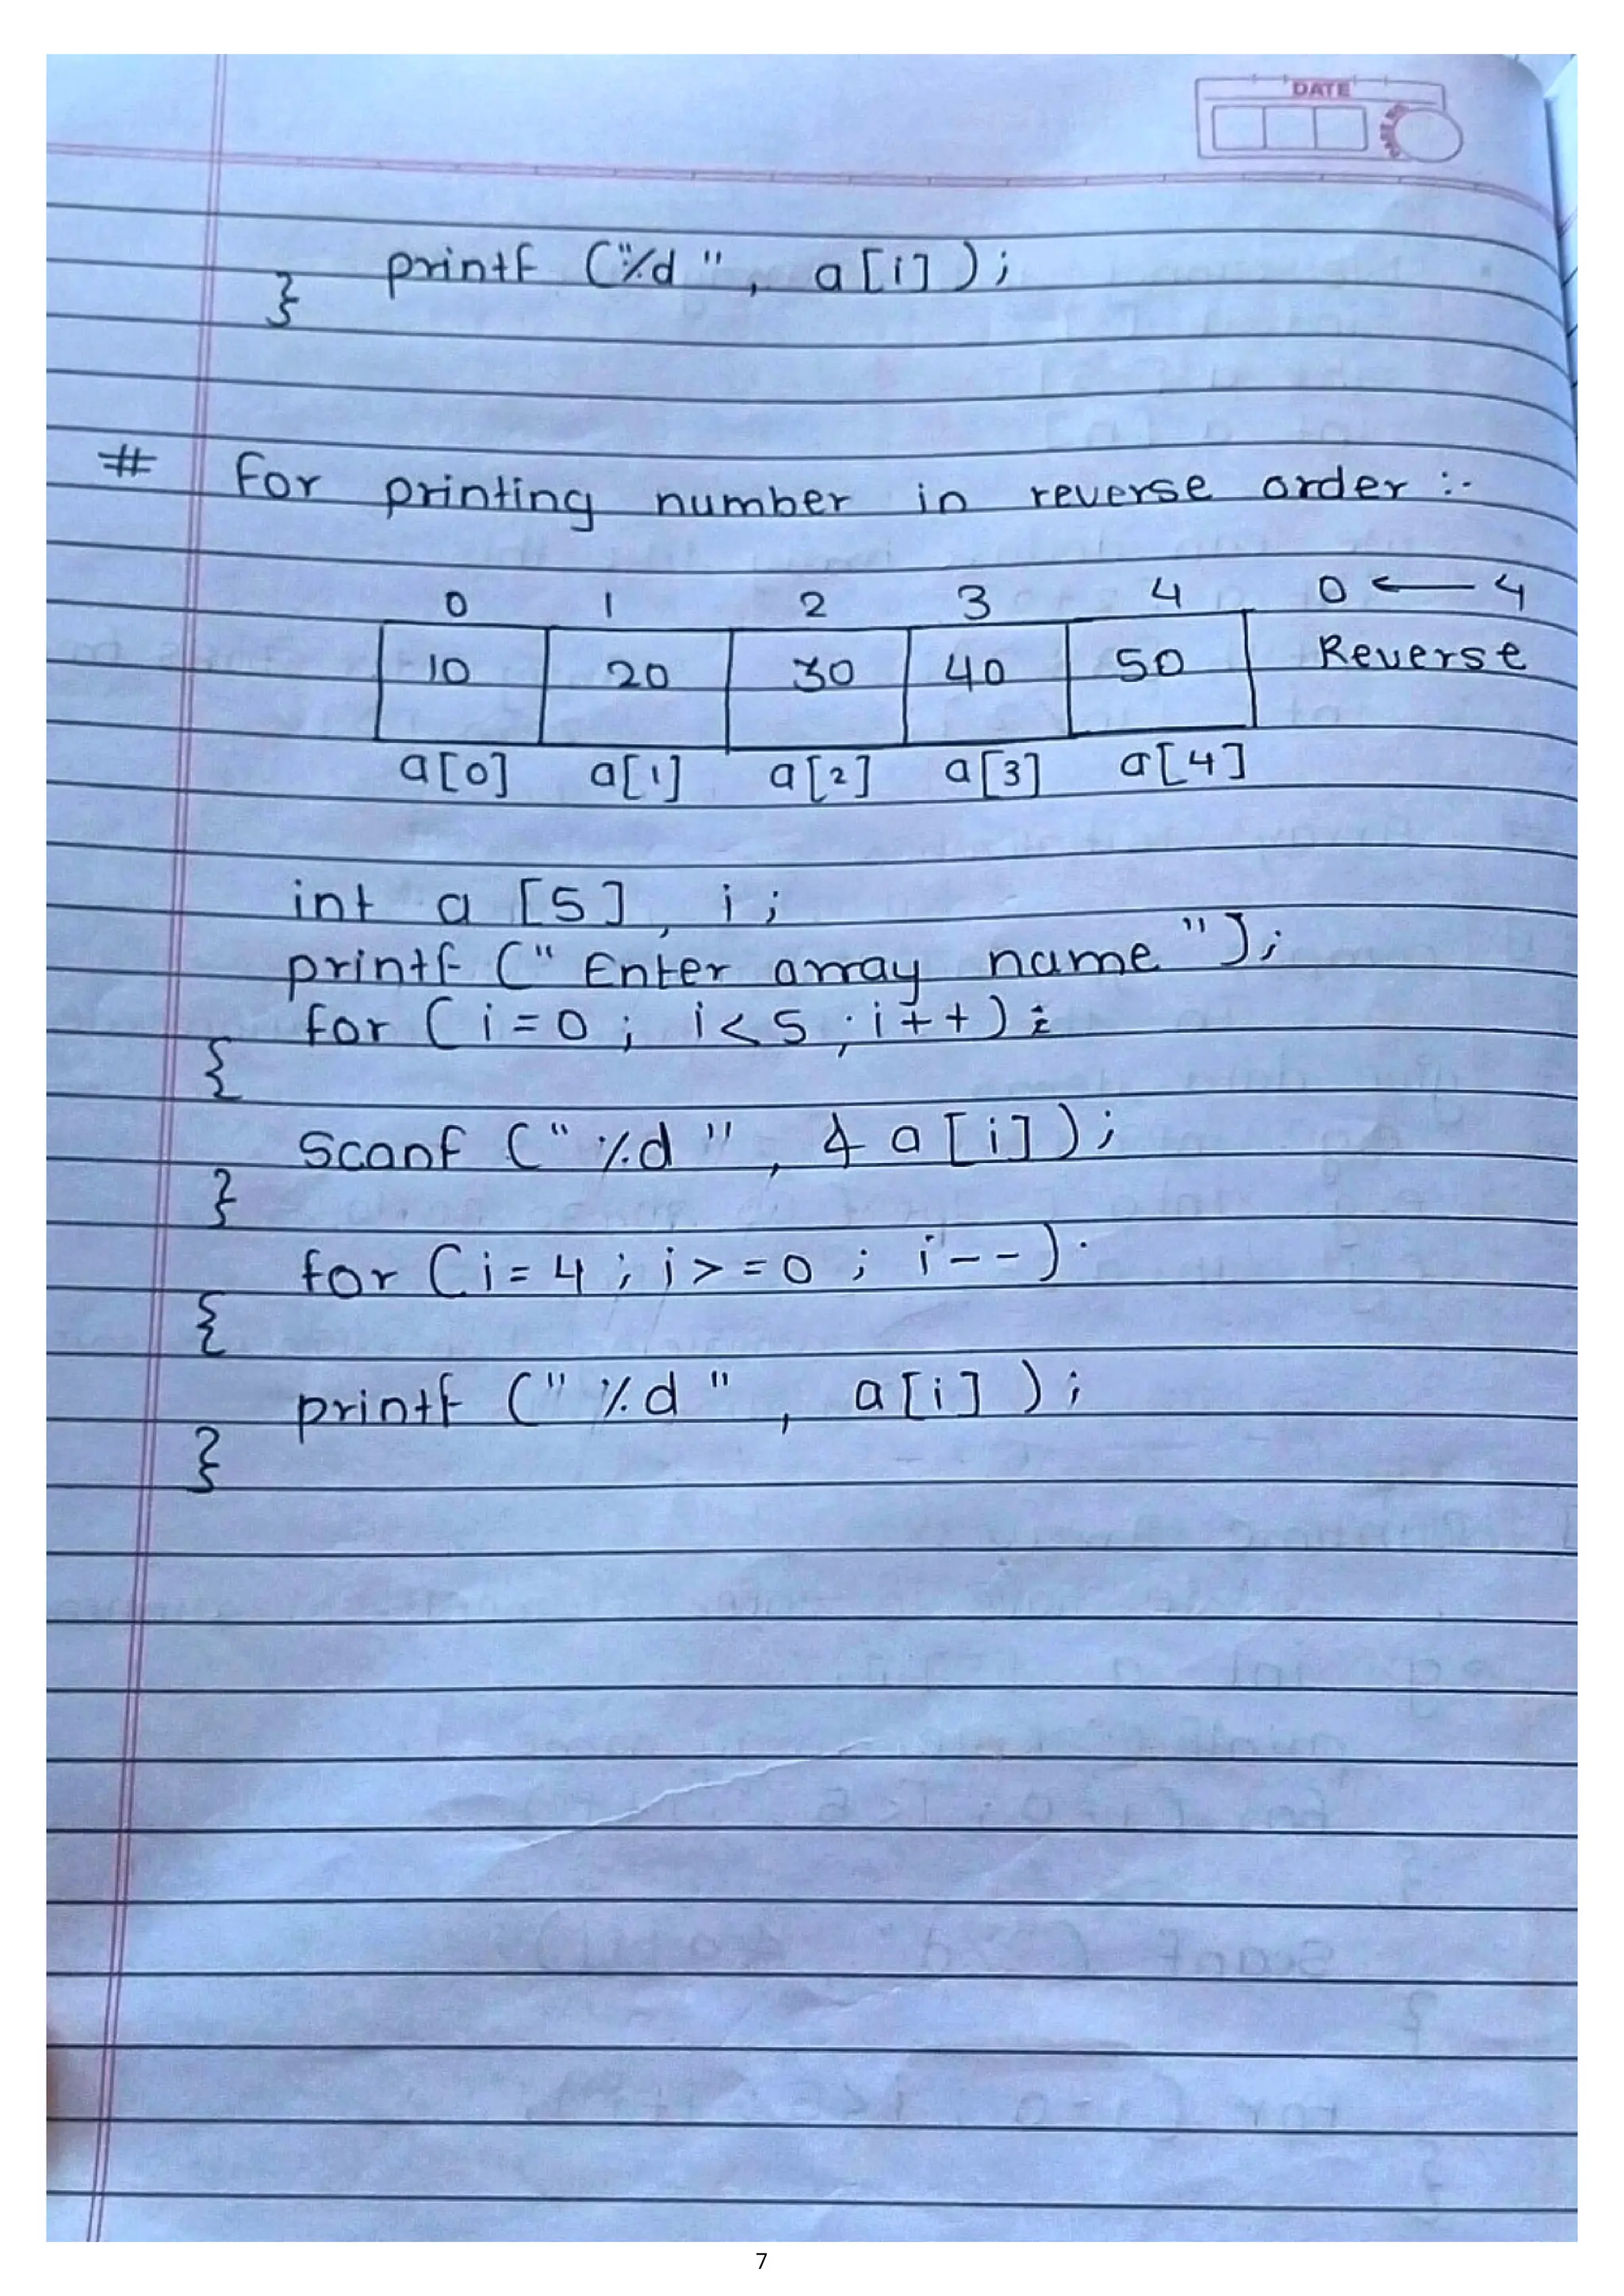 DATE
printf ("%d", a[i]);
}
# For printing number in reverse order :-
0 1 2 3 4 0 ← 4
10 20 30 40 50 Reverse
a[0] a[1] a[2] a[3] a[4]
int a [5], i;
printf (" Enter array name ");
for (i=0; i<5; i++);
{
scanf (" %d ", & a[i]);
}
for (i=4; i>=0; i--)
{
printf (" %d ", a[i]);
}
7